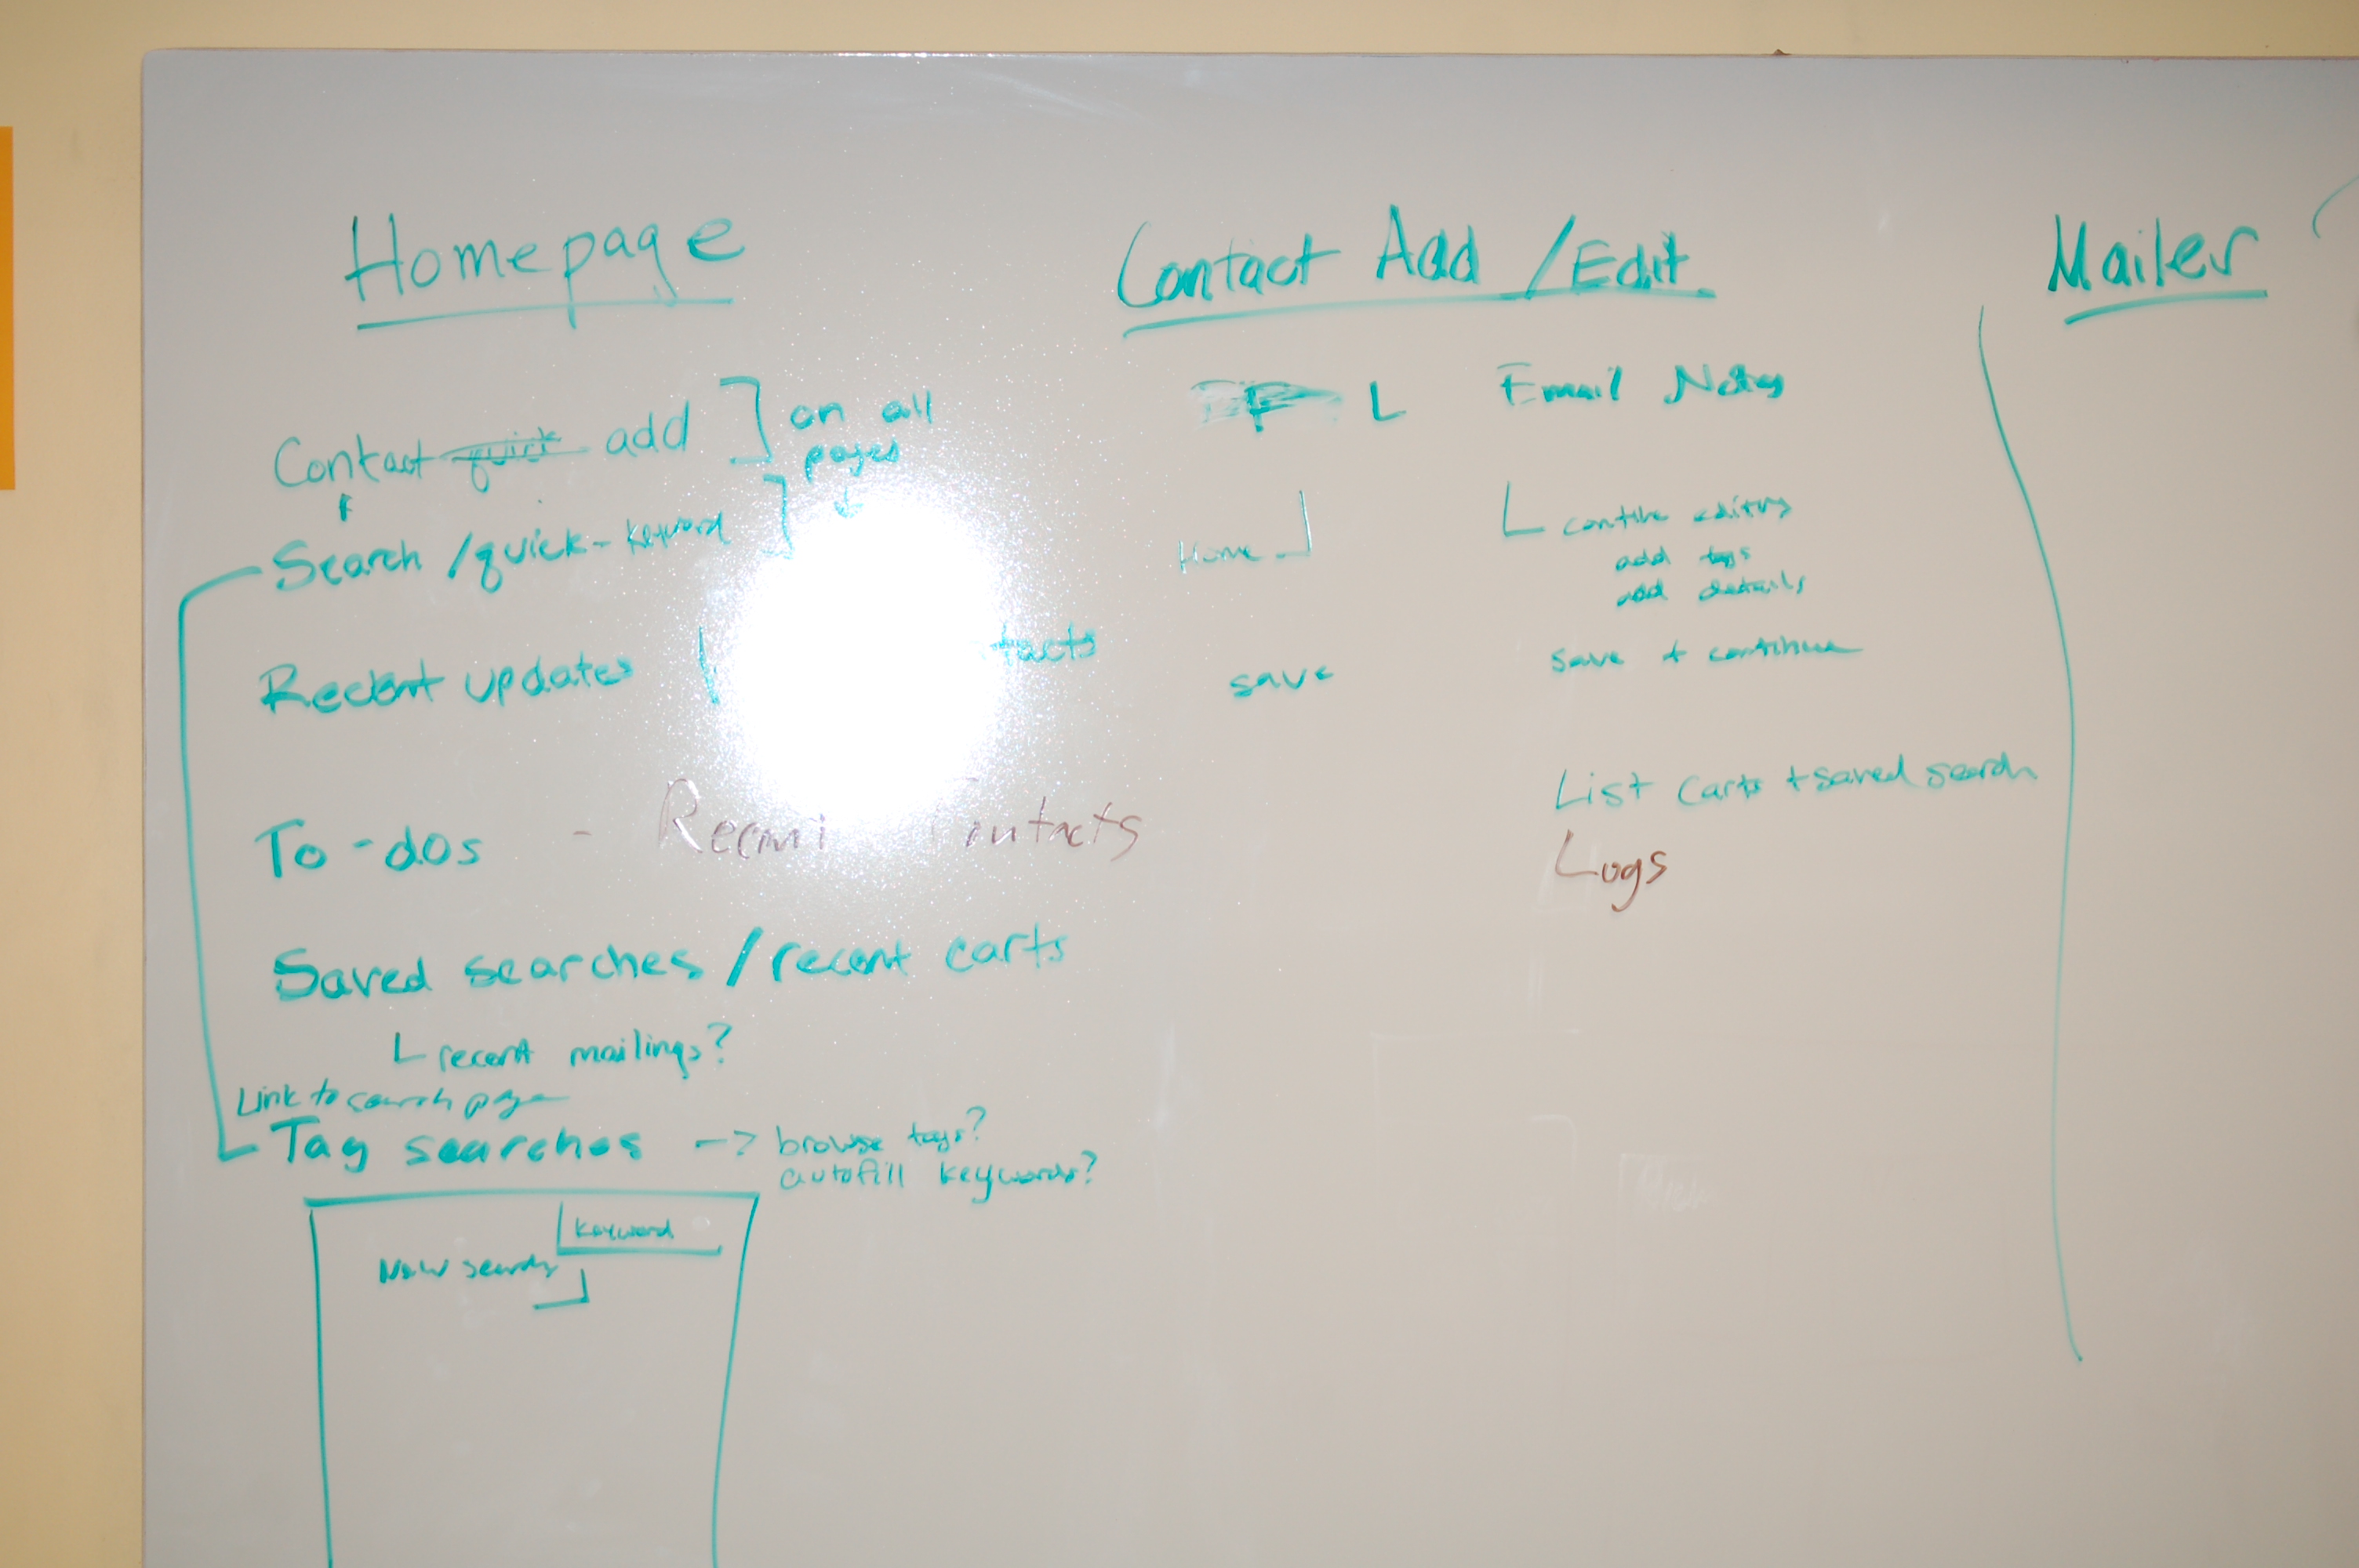 Homepage
Contact quick add
on all
pages
Search /quick-keyword
Recent updates
To-dos -
Saved searches / recent carts
recent mailings?
Link to search page
Tag searches -> browse tags?
autofill keywords?
keyword
New search
Contact Add /Edit
F
Email Notes
Home
continue editing
add tags
add details
save
save + continue
List carts + saved search
Logs
Mailer